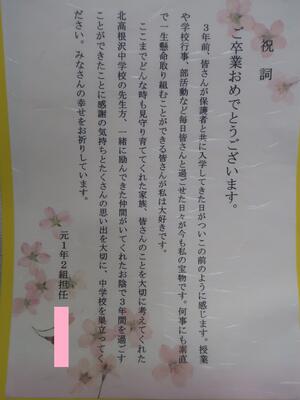 祝詞
ご卒業おめでとうございます。
３年前、皆さんが保護者と共に入学してきた日がついこの前のように感じます。授業
や学校行事、部活動など毎日皆さんと過ごせた日々が今も私の宝物です。何事にも素直
で一生懸命取り組むことができる皆さんが私は大好きです。
ここまでどんな時も見守り育ててくれた家族、皆さんのことを大切に考えてくれた
北高根沢中学校の先生方、一緒に励んできた仲間がいてくれたお陰で３年間を過ごす
ことができたことに感謝の気持ちとたくさんの思い出を大切に、中学校を巣立ってく
ださい。みなさんの幸せをお祈りしています。
元１年２組担任